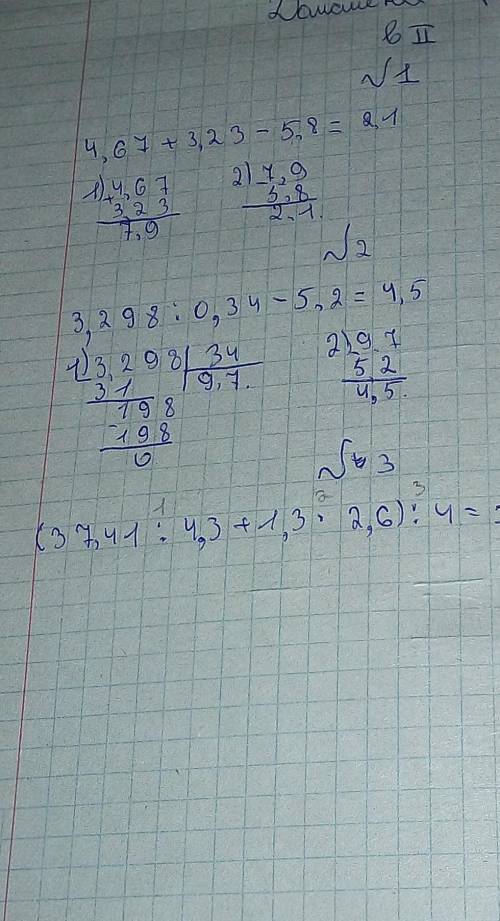 в II
№1
4,67 + 3,23 - 5,8 = 2,1
1) 4,67 2) 7,9
+ 3,23 5,8
7,9 2,1.
№2
3,298 : 0,34 - 5,2 = 4,5
1) 3,298 34 2) 9,7
31 9,7. 52
198 4,5.
- 198
0
№ 3
1 2 3
(37,41 : 4,3 + 1,3 · 2,6) : 4 =